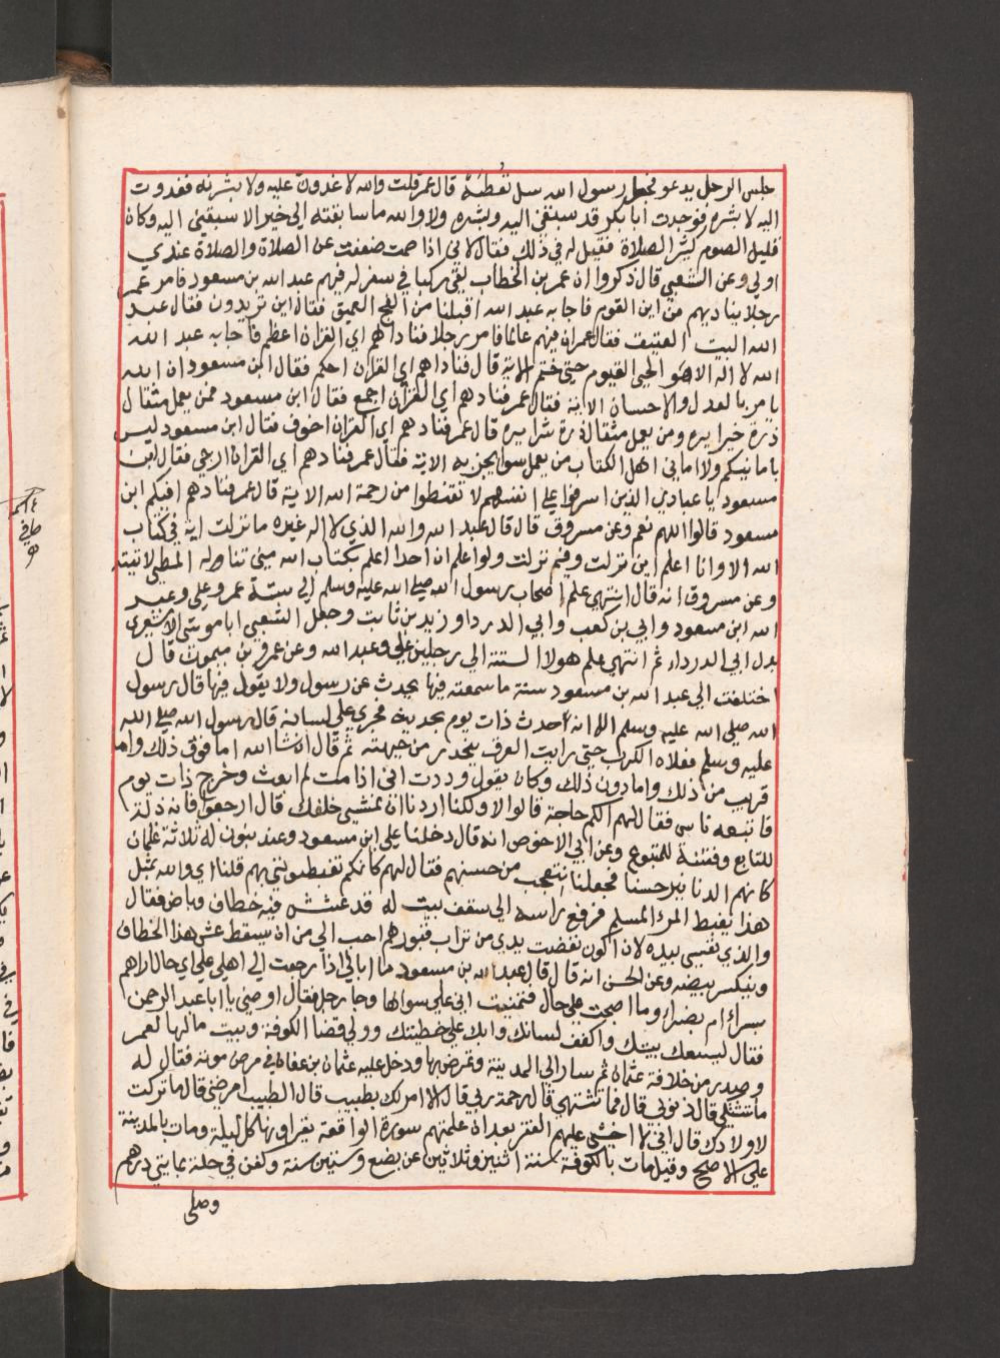 جلس الرجل يدعو فجعل رسول الله سل تعطه قال عمر قلت والله لاغدون عليه ولا بشرنه فغدوت
اليه لا بشره فوجدت ابا بكر قد سبقني اليه وبشره ولا والله ما سابقته الى خير الا سبقني اليه وكان
قليل الصوم كثير الصلاة فقيل له في ذلك فقال لاني اذا صمت ضعفت عن الصلاة والصلاة عندي
اولي وعن الشعبي قال ذكروا ان عمر بن الخطاب لقي ركبا في سفر له فيهم عبد الله بن مسعود فامر عمر
رجلا يناديهم من اين القوم فاجابه عبد الله اقبلنا من الفج العميق فقال اين تريدون فقال عبد
الله البيت العتيق فقال عمر ان فيهم عالما فامر رجلا فناداهم اي القران اعظم فاجابه عبد الله
الله لا اله الا هو الحي القيوم حتى ختم الاية قال فناداهم اي القران احكم فقال ابن مسعود ان الله
يامر بالعدل والاحسان الاية فقال عمر فنادهم اي القران اجمع فقال ابن مسعود فمن يعمل مثقال
ذرة خيرا يره ومن يعمل مثقال ذرة شرا يره قال عمر فنادهم اي القران اخوف فقال ابن مسعود ليس
بامانيكم ولا اماني اهل الكتاب من يعمل سوا يجز به الاية فقال عمر فنادهم اي القران ارجي فقال ابن
مسعود يا عبادي الذين اسرفوا علي انفسهم لا تقنطوا من رحمة الله الاية قال عمر فنادهم افيكم ابن
مسعود قالوا اللهم نعم وعن مسروق قال قال عبد الله والله الذي لا اله غيره ما نزلت اية في كتاب
الله الا وانا اعلم اين نزلت وفيم نزلت ولو اعلم ان احدا اعلم بكتاب الله مني تناوله المطي لاتيته
وعن مسروق انه قال انتهي علم اصحاب رسول الله صلي الله عليه وسلم الي ستة عمر وعلي وعبد
الله ابن مسعود وابي بن كعب وابي الدرداو زيد بن ثابت وجعل الشعبي ابا موسى الاشعري
بدل ابي الدرداء ثم انتهي علم هولا الستة الي رجلين علي وعبد الله وعن عمرو بن ميمون قال
اختلفت الي عبد الله بن مسعود سنة ما سمعته فيها يحدث عن رسول ولا يقول فيها قال رسول
الله صلى الله عليه وسلم الا انه احدث ذات يوم بحديث فجري علي لسانه قال رسول الله صلي الله
عليه وسلم فعلاه الكرب حتي رايت العرق يتحدر من جبهته ثم قال ان شا الله اما فوق ذلك واما
قريب من ذلك واما دون ذلك وكان يقول وددت اني اذا مت لم ابعث وخرج ذات يوم
فاتبعه ناس فقال لهم الكم حاجة قالوا لا ولكنا اردنا ان نمشي خلفك قال ارجعوا فانه ذلة
للتابع وفتنة للمتبوع وعن ابي الاحوص انه قال دخلنا علي ابن مسعود وعنده بنون له ثلاثة غلمان
كانهم الدنانير حسنا فجعلنا نتعجب من حسنهم فقال لهم كانكم تغبطوني بهم قلنا اي والله بمثل
هذا يغبط المرء المسلم فرفع راسه الي سقف بيت له قد عشش فيه خطاف وباض فقال
والذي نفسي بيده لان اكون نفضت يدي من تراب قبورهم احب الي من ان يسقط عش هذا الخطاف
وينكسر بيضه وعن الحسن انه قال قال عبد الله بن مسعود ما ابالي اذا رجعت الي اهلي علي اي حال اراهم
بسراء ام بضراء وما اصبحت علي حال فتمنيت اني علي سواها وجا رجل فقال اوصني يا ابا عبد الرحمن
فقال ليسعك بيتك واكفف لسانك وابك علي خطيتك وولي قضا الكوفة وبيت مالها لعمر
وصدر من خلافة عثمان ثم سار الي المدينة وتمرض بها ودخل عليه عثمان بن عفان في مرض موته فقال له
ما تشتكي قال ذنوبي قال فما تشتهي قال رحمة ربي قال الا امر لك بطبيب قال الطبيب امرضني قال ما تركت
لاولادك قال اني لا اخشى عليهم الفقر بعد ان علمتهم سورة الواقعة يقراونها كل ليلة ومات بالمدينة
علي الاصح وقيل مات بالكوفة سنة اثنين وثلاثين عن بضع وستين سنة وكفن في حلة بمايتي درهم
وصلى